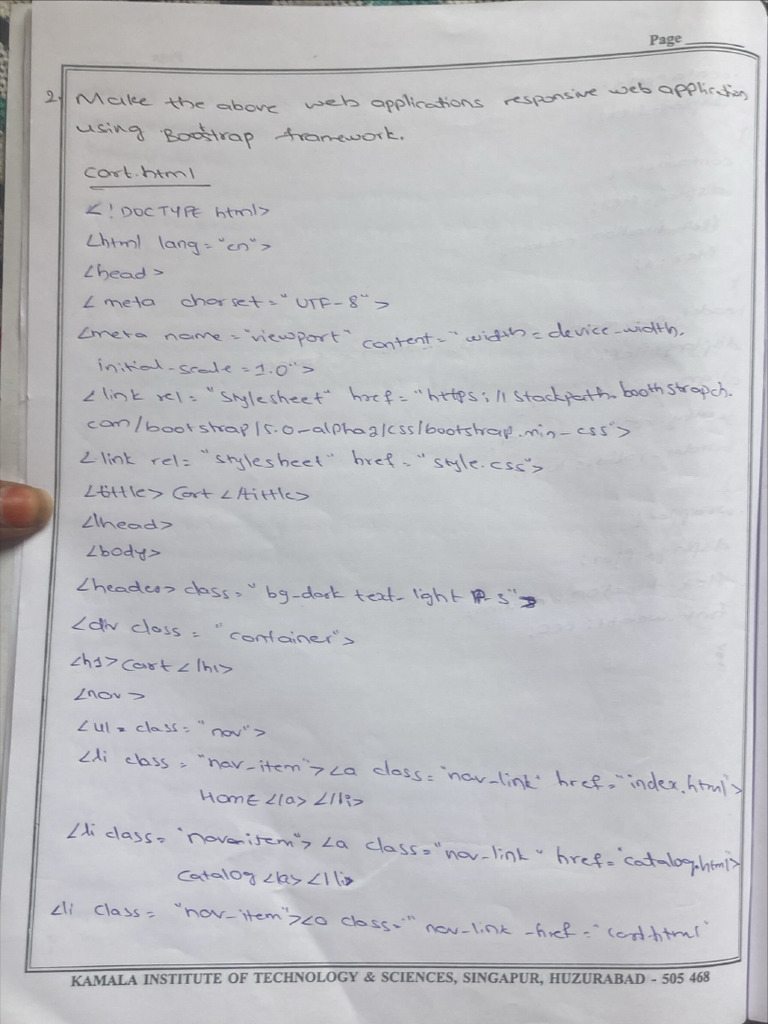 Page
2. Make the above web applications responsive web application
using Bootstrap framework.
cart.html
<!DOCTYPE html>
<html lang="en">
<head>
<meta charset="UTF-8">
<meta name="viewport" content="width=device-width,
initial-scale=1.0">
<link rel="stylesheet" href="https://stackpath.boothstrapch.
com/bootstrap/5.0-alpha2/css/bootstrap.min-css">
<link rel="stylesheet" href="style.css">
<tittle> Cart </tittle>
</head>
<body>
<header> class="bg-dark text-light P-3">
<div class="container">
<h1>Cart</h1>
<nav>
<ul = class="nav">
<li class="nav-item"><a class="nav-link" href="index.html">
HOME</a></li>
<li class="nav-item"> <a class="nav-link" href="catalog.html">
Catalog</a></li>
<li class="nav-item"><a class="" nav-link -href="cart.html"
KAMALA INSTITUTE OF TECHNOLOGY & SCIENCES, SINGAPUR, HUZURABAD - 505 468